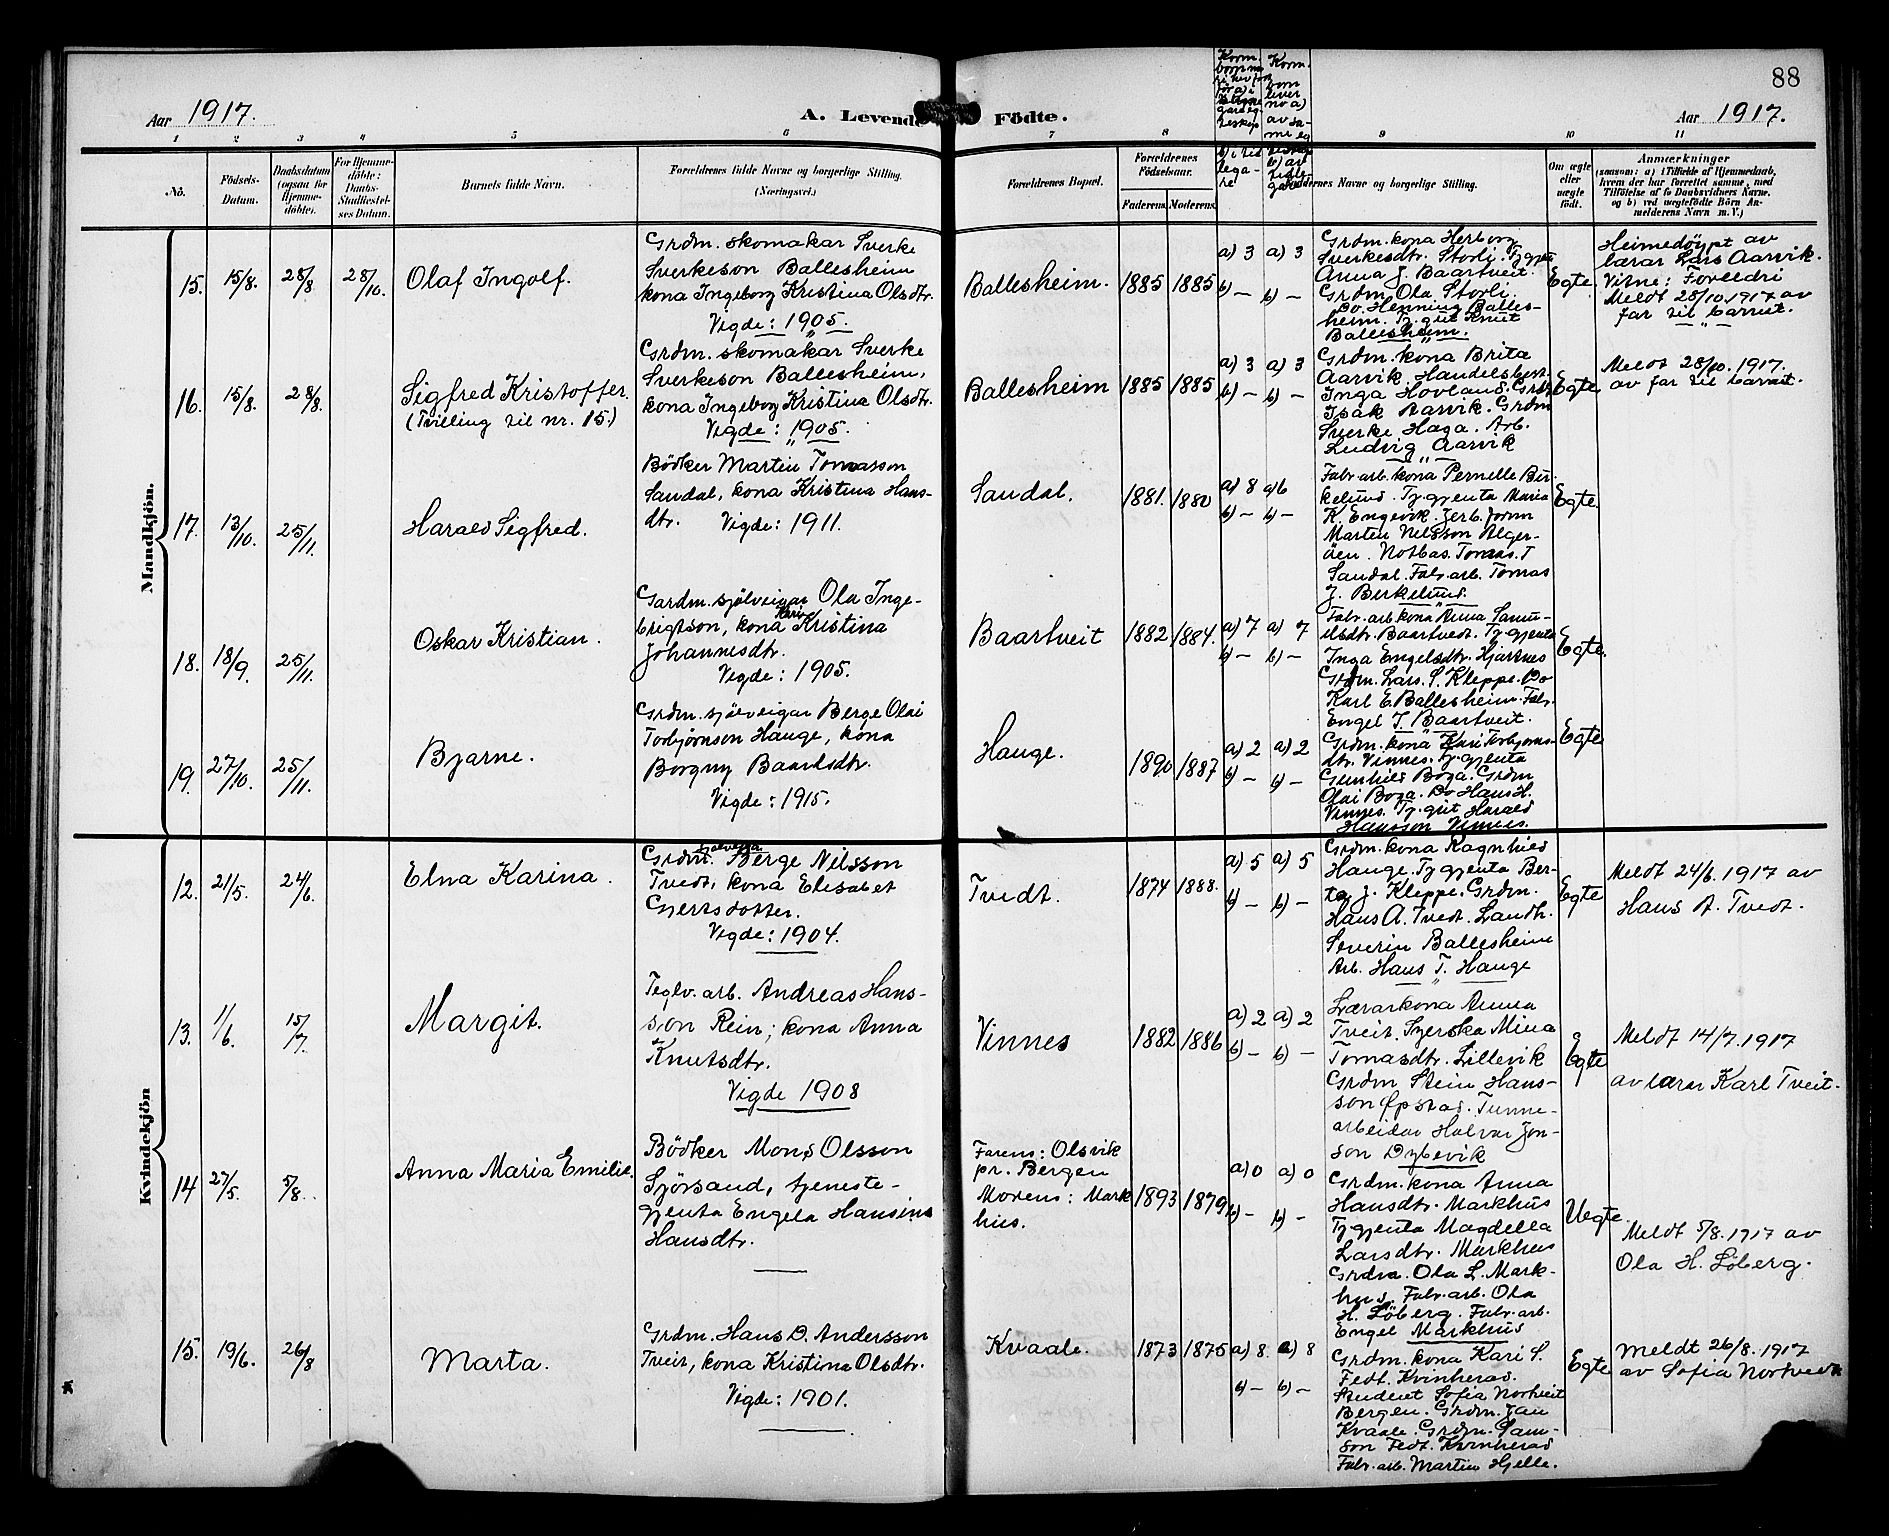 88
Aar 1917.
A. Levende Födte.
Aar 1917.
1 2 3 4 5 6 7 8 9 10 11
No.
Födsels-Datum.
Daabsdatum (ogsaa for Hjemme-döbte).
For Hjemme-döbte: Daabs-Stadfæstel-ses Datum.
Barnets fulde Navn.
Forældrenes fulde Navne og borgerlige Stilling. (Næringsvei.)
Forældrenes Bopæl.
Forældrenes Födselsaar.
Faderens. Moderens.
Navne og borgerlige Stilling.
Om ægte eller uægte födt.
Anmærkninger
(saasom: a) i Tilfælde af Hjemmedaab, hvem der har forrettet samme, med Tilföielse af to Daabsvidners Navne, og b) ved uægtefödte Börn An-melderens Navn m. V.)
Mandkjön.
15. 15/8. 28/8 28/10. Olaf Ingolf.
Grdm. skomakar Sverke
Sverkeson Ballesheim
kona Ingeborg Kristina Olsdtr.
Vigde: 1905.
Ballesheim. 1885 1885 a) 3 a) 3
b) — b) —
Grdm. kona Herborg
Sverkesdtr. Storli. Tj.gjenta
Anna J. Baartveit.
Grdm. Ola Storli.
Do. Henning Balles-
heim. Tj.gut Knut
Ballesheim.
Egte.
Heimedøypt av
lærar Lars Aarvik.
Vitne: Foreldri
Meldt 28/10.1917 av
far til barnet.
16. 15/8. 28/8. Sigfred Kristoffer.
(Tvilling til nr. 15.)
Grdm. skomakar Sverke
Sverkeson Ballesheim,
kona Ingeborg Kristina Olsdtr.
Vigde: 1905.
Ballesheim 1885 1885 a) 3 a) 3
b) — b) —
Grdm. kona Brita
Aarvik. Handelsbest.
Inga Hovland. Grdm
Isak Aarvik. Grdm
Sverke Haga. Arb.
Ludvig Aarvik
Egte
Meldt 28/10. 1917.
av far til barnet.
17. 13/10. 25/11. Harald Sigfred.
Bödker Martin Tomasson
Sandal, kona Kristina Hans-
dtr. Vigde: 1911.
Sandal. 1881. 1880 a) 8 a) 6
b) — b) —
Fabr. arb. kona Pernelle Bir-
kelund. Tj.gjenta Maria
K. Engevik. Jerb.form
Marten Nilsson Alger-
öen. Notbas. Tomas. T
Sandal. Fabr. arb. Tomas
J. Berkelund.
Egte.
18. 18/9. 25/11. Oskar Kristian.
Gardm. sjölveigar Ola Inge-
brigtson, kona Kari Kristina
Johannesdtr.
Vigde: 1905.
Baartveit 1882 1884. a) 7 a) 7
b) — b) —
Fabr. arb kona Anna Samu-
elsdtr. Baartvedt. Tj.gjenta
Inga Engelsdtr. Hjartnes
Grdm. Lars. S. Kleppe. Do
Karl E. Ballesheim. Fabr.
Engel J. Baartveit.
Egte.
19. 27/10. 25/11. Bjarne.
Grdm. sjölveigar Berge Olai
Torbjörnson Hauge, kona
Borgny Baardsdtr.
Vigde: 1915.
Hauge. 1890 1887 a) 2 a) 2
b) — b) —
Grdm. kona Kari Torbjörns-
dtr. Vinnes. Tj.gjenta
Gunhild Boga. Grdm
Olai Boga. Do Hans H.
Vinnes. Tj.gut Harald
Hansson Vinnes.
Egte
Kvindekjön
12. 21/5. 24/6. Elna Karina.
Grdm. Berge Nilsson
Tvedt, kona Elisabet
Gjertsdotter.
Vigde: 1904.
Tvedt. 1874 1888. a) 5 a) 5
b) — b) —
Grdm. kona Ragnhild
Hauge. Tj.gjenta Ber-
ta J. Kleppe. Grdm.
Hans A. Tvedt. Landh.
Severin Ballesheim
Arb. Hans T. Hauge
Egte
Meldt 24/6. 1917 av
Hans A. Tvedt.
13. 1/6. 15/7. Margit.
Teglv. arb. Andreas Hans-
son Rein; kona Anna
Knutsdtr.
Vigde 1908
Vinnes 1882 1886 a) 2 a) 2
b) — b) —
Lærarkona Anna
Tveit. Syerska Mina
Tomasdtr. Lillevik
Grdm Stein Hans-
son Øpstad. Tunne-
arbeidar Halvar Jon-
son Dybevik
Egte
Meldt 14/7. 1917
av lærar Karl Tveit.
14 27/5. 5/8. Anna Maria Emilie.
Bödker Mons Olsson
Sjörsand, tjeneste-
gjenta Engela Hansine
Hansdtr.
Farens: Olsvik
pr. Bergen
Morens: Mark
hus.
1893 1879 a) 0 a) 0
b) — b) —
Grdm. kona Anna
Hansdtr. Markhus
Tj.gjenta Magdella
Larsdtr. Markhus
Grdm. Ola L. Mark-
hus. Fabr. arb. Ola
H. Löberg. Fabr. arb.
Engel Markhus
Uegte.
Meldt 5/8. 1917 av
Ola H. Löberg.
15. 19/6. 26/8 Marta.
Grdm. Hans D. Andersson
Tveit, kona Kristina Olsdtr.
Vigde: 1901.
Kvaale. 1873 1875 a) 8. a) 8
b) — b) —
Grdm. kona Kari S.
Fedt. Kvinherad.
Student Sofia Nortveit
Bergen. Grdm. Jan
Kvaale. Grdm. Sam-
son Fedt. Kvinherad
Fabr. arb. Martin Hjelle.
Egte
Meldt 26/8. 1917
av Sofia Nortveit